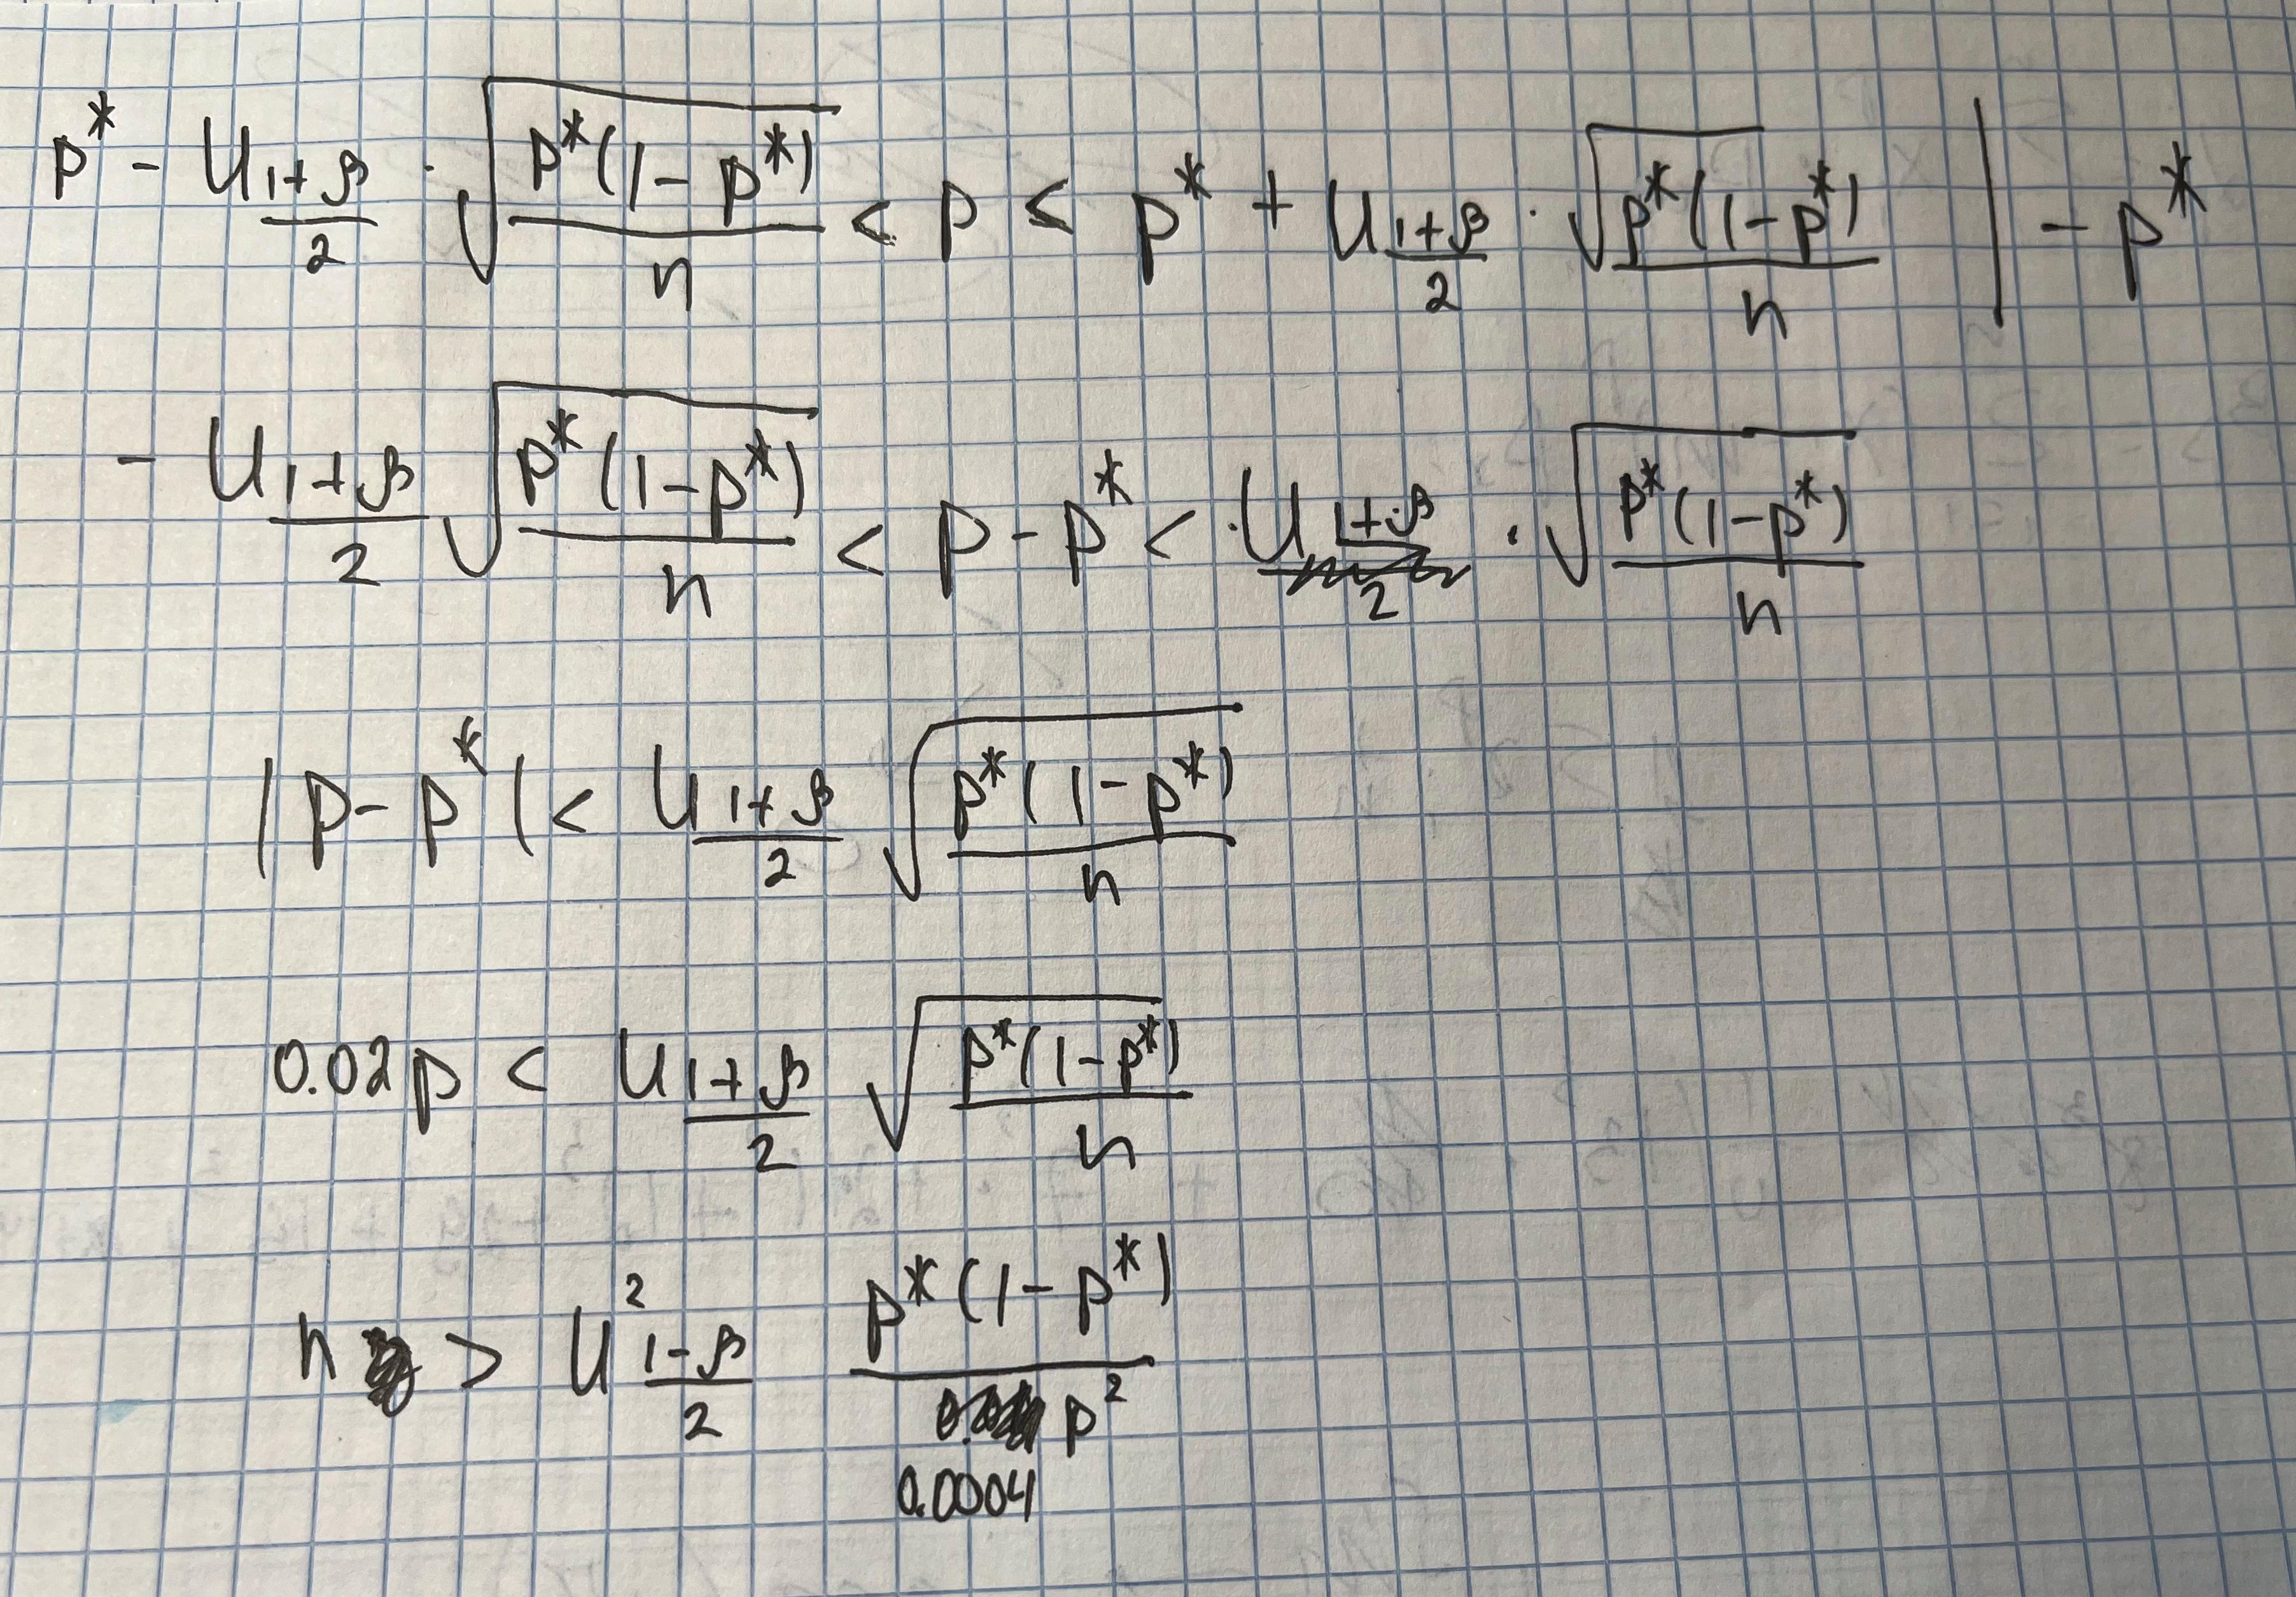 p* - u_{\frac{1+β}{2}} · \sqrt{\frac{p*(1-p*)}{n}} < p < p* + u_{\frac{1+β}{2}} · \sqrt{\frac{p*(1-p*)}{n}} | - p*
- u_{\frac{1+β}{2}} \sqrt{\frac{p*(1-p*)}{n}} < p - p* < · u_{\frac{1+β}{2}} · \sqrt{\frac{p*(1-p*)}{n}}
|p - p*| < u_{\frac{1+β}{2}} \sqrt{\frac{p*(1-p*)}{n}}
0.02p < u_{\frac{1+β}{2}} \sqrt{\frac{p*(1-p*)}{n}}
n > u^2_{\frac{1-β}{2}} \frac{p*(1-p*)}{0.0004 p^2}